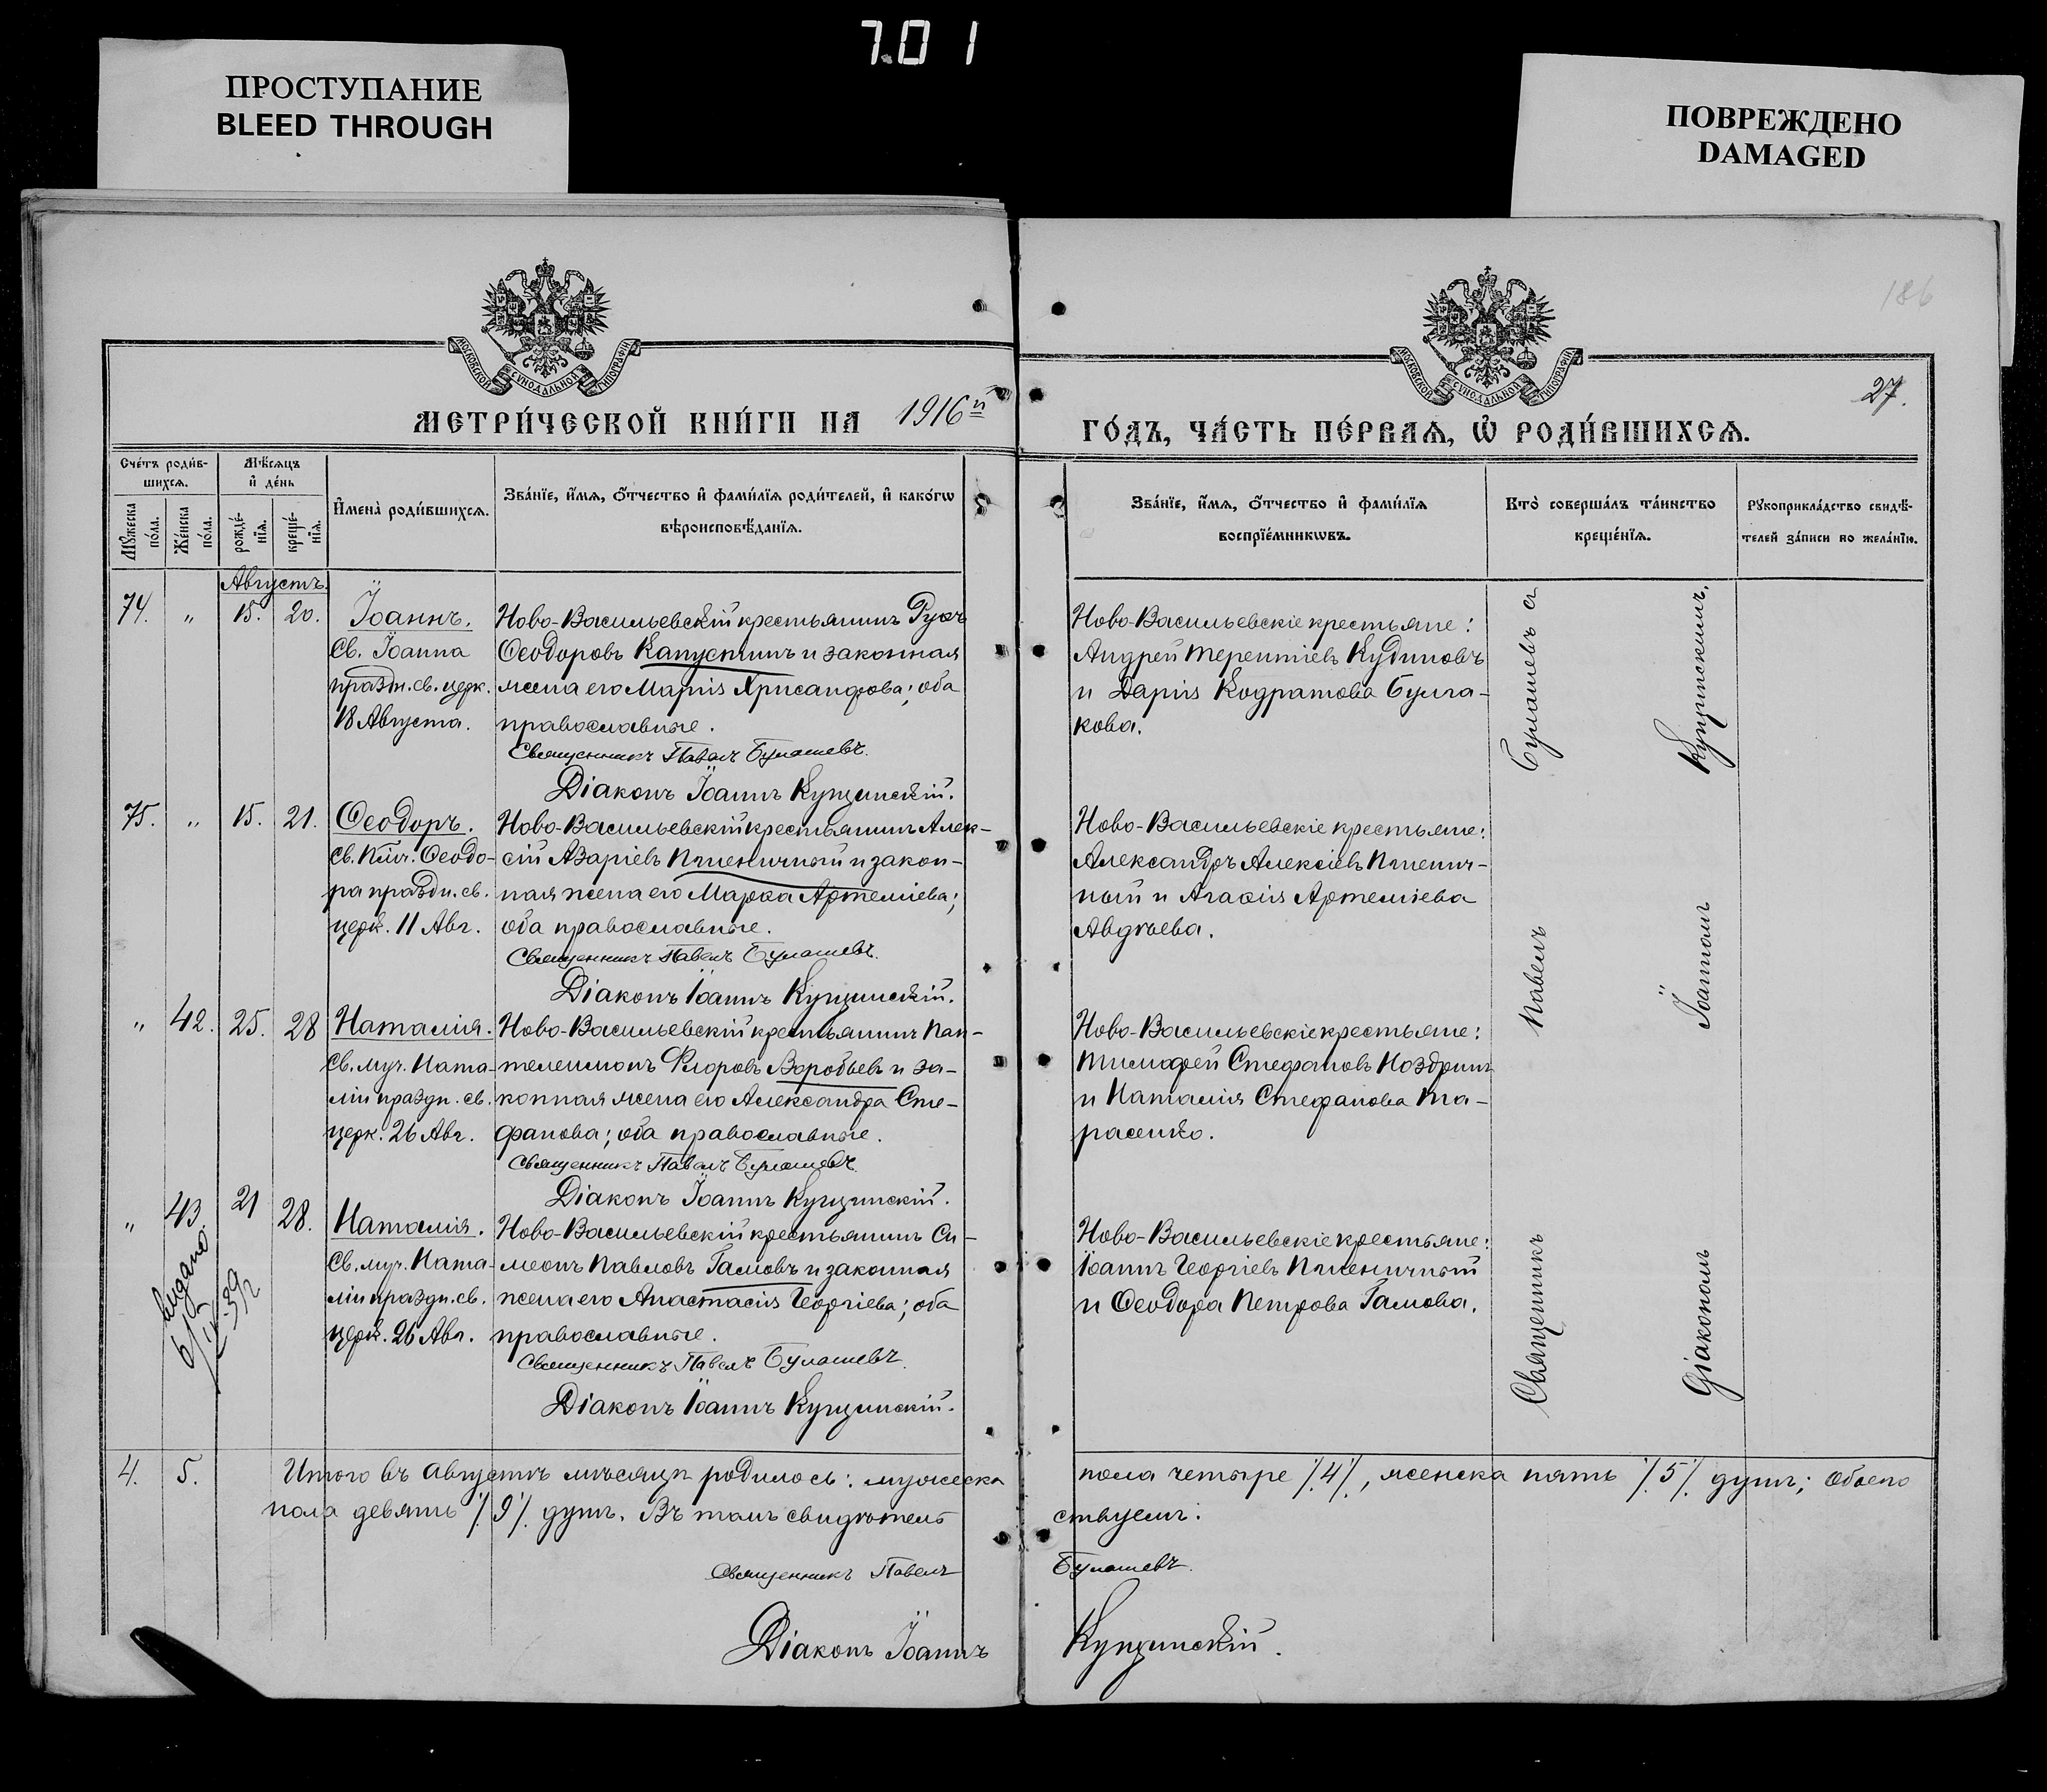 7.01
ПРОСТУПАНИЕ
BLEED THROUGH
ПОВРЕЖДЕНО
DAMAGED
186
МОСКОВСКОЙ СѴНОДАЛЬНОЙ ТИПОГРАФІИ
МОСКОВСКОЙ СѴНОДАЛЬНОЙ ТИПОГРАФІИ
27.
МЕТРИ́ЧЕСКОЙ КНИ́ГИ НА 1916й
ГО́ДЪ, ЧА́СТЬ ПЕ́РВАѦ, Ѡ҆ РОДИ́ВШИХСѦ.
Сче́тъ роди́в-
шихсѧ.
Мѣ́сѧцъ
и҆ де́нь
Мꙋ́жеска
по́ла.
Же́нска
по́ла.
рожде́-
нїѧ.
креще́-
нїѧ.
И҆мена̀ роди́вшихсѧ.
Зва́нїе, и҆́мѧ, ѻ҆́тчество и҆ фами́лїѧ роди́телей, и҆ како́гѡ
вѣроисповѣ́данїѧ.
Зва́нїе, и҆́мѧ, ѻ҆́тчество и҆ фами́лїѧ
воспрїе́мникѡвъ.
Кто̀ соверша́лъ та́инство
креще́нїѧ.
Рꙋкоприкла́дство свидѣ́-
телей за́писи по жела́нїю.
Августъ.
74. " 15. 20. Іоаннъ.
Св. Іоанна
праздн. св. церк.
18 Августа.
Ново-Васильевскій крестьянинъ Руфъ
Ѳеодоровъ Капустинъ и законная
жена его Марія Хрисанфова; оба
православные.
Священникъ Павелъ Булашевъ.
Діаконъ Іоаннъ Купчинскій.
Ново-Васильевскіе крестьяне:
Андрей Терентіевъ Кудиновъ
и Дарія Кодратова Булга-
кова.
75. " 15. 21. Ѳеодоръ.
Св. Ѳеодо-
ра праздн. св.
церк. 11 Авг.
Ново-Васильевскій крестьянинъ Алек-
сій Азаріевъ Пшеничный и закон-
ная жена его Марѳа Артеміева;
оба православные.
Священникъ Павелъ Булашевъ.
Діаконъ Іоаннъ Купчинскій.
Ново-Васильевскіе крестьяне:
Александръ Алексіевъ Пшенич-
ный и Агаѳія Артеміева
Авдѣева.
" 42. 25. 28 Наталія.
Св. муч. Ната-
ліи праздн. св.
церк. 26 Авг.
Ново-Васильевскій крестьянинъ Пан-
телеимонъ Флоровъ Воробьевъ и за-
конная жена его Александра Сте-
фанова; оба православные.
Священникъ Павелъ Булашевъ
Діаконъ Іоаннъ Купчинскій.
Ново-Васильевскіе крестьяне:
Тимофей Стефановъ Ноздринъ
и Наталія Стефанова Та-
расенко.
" 43. 21 28. Наталія.
Св. муч. Ната-
ліи праздн. св.
церк. 26 Авг.
Выдано
Ново-Васильевскій крестьянинъ Си-
меонъ Павловъ Гамовъ и законная
жена его Анастасія Георгіева; оба
православные.
Священникъ Павелъ Булашевъ
Діаконъ Іоаннъ Купчинскій.
Ново-Васильевскіе крестьяне:
Іоаннъ Георгіевъ Пшеничный
и Ѳеодора Петрова Гамова.
Священникъ Павелъ Булашевъ съ
Діакономъ Іоанномъ Купчинскимъ.
4. 5. Итого въ Августѣ мѣсяцѣ родилось: мужеска пола четыре /4/, женска пять /5/ душъ; обоего
пола девять /9/ душъ. Въ томъ свидѣтельствуемъ:
Священникъ Павелъ Булашевъ.
Діаконъ Іоаннъ Купчинскій.